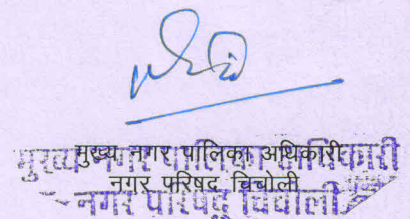 मुख्य नगर पालिका अधिकारी
नगर परिषद चिचोली
मुख्य नगर पालिका अधिकारी
नगर परिषद् चिचोली